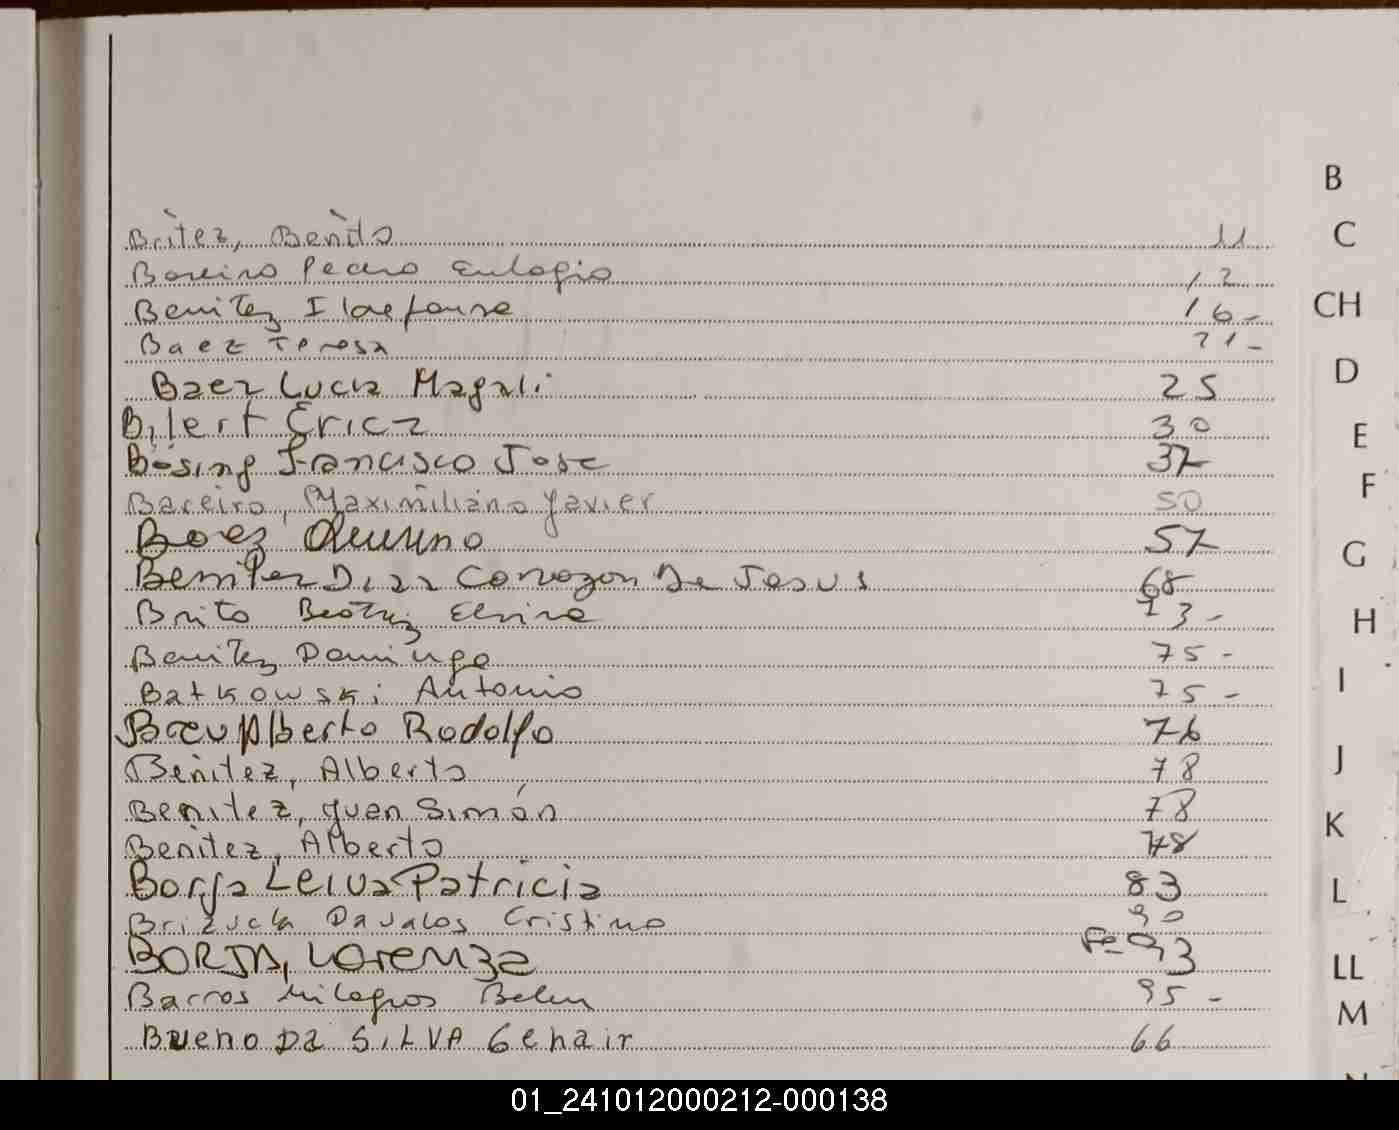 B
Britez, Benito 11
C
Bareiro Pedro Eulogio 12
Benitez Ildefonso 16-
CH
Baez Teresa 21-
D
Baez Lucia Magali 25
Bilert Erica 30
E
Bosing Francisco Jose 37
F
Bareiro, Maximiliano Javier 50
Baez 57
G
Benitez Diaz Corazon De Jesus 68
Brito Beatriz Elvira 73-
H
Benitez Domingo 75-
I
Batkowski Antonio 75-
Alberto Rodolfo 76
J
Benitez, Alberto 78
Benitez, Juan Simón 78
K
Benitez, Alberto 78
Borja Leiva Patricia 83
L
Brizuela Davalos Cristino 90
BORJA, Lorenza Fe 93
LL
Barros Milagros Belen 95-
M
Bueno Da SILVA Genair 66
01_241012000212-000138